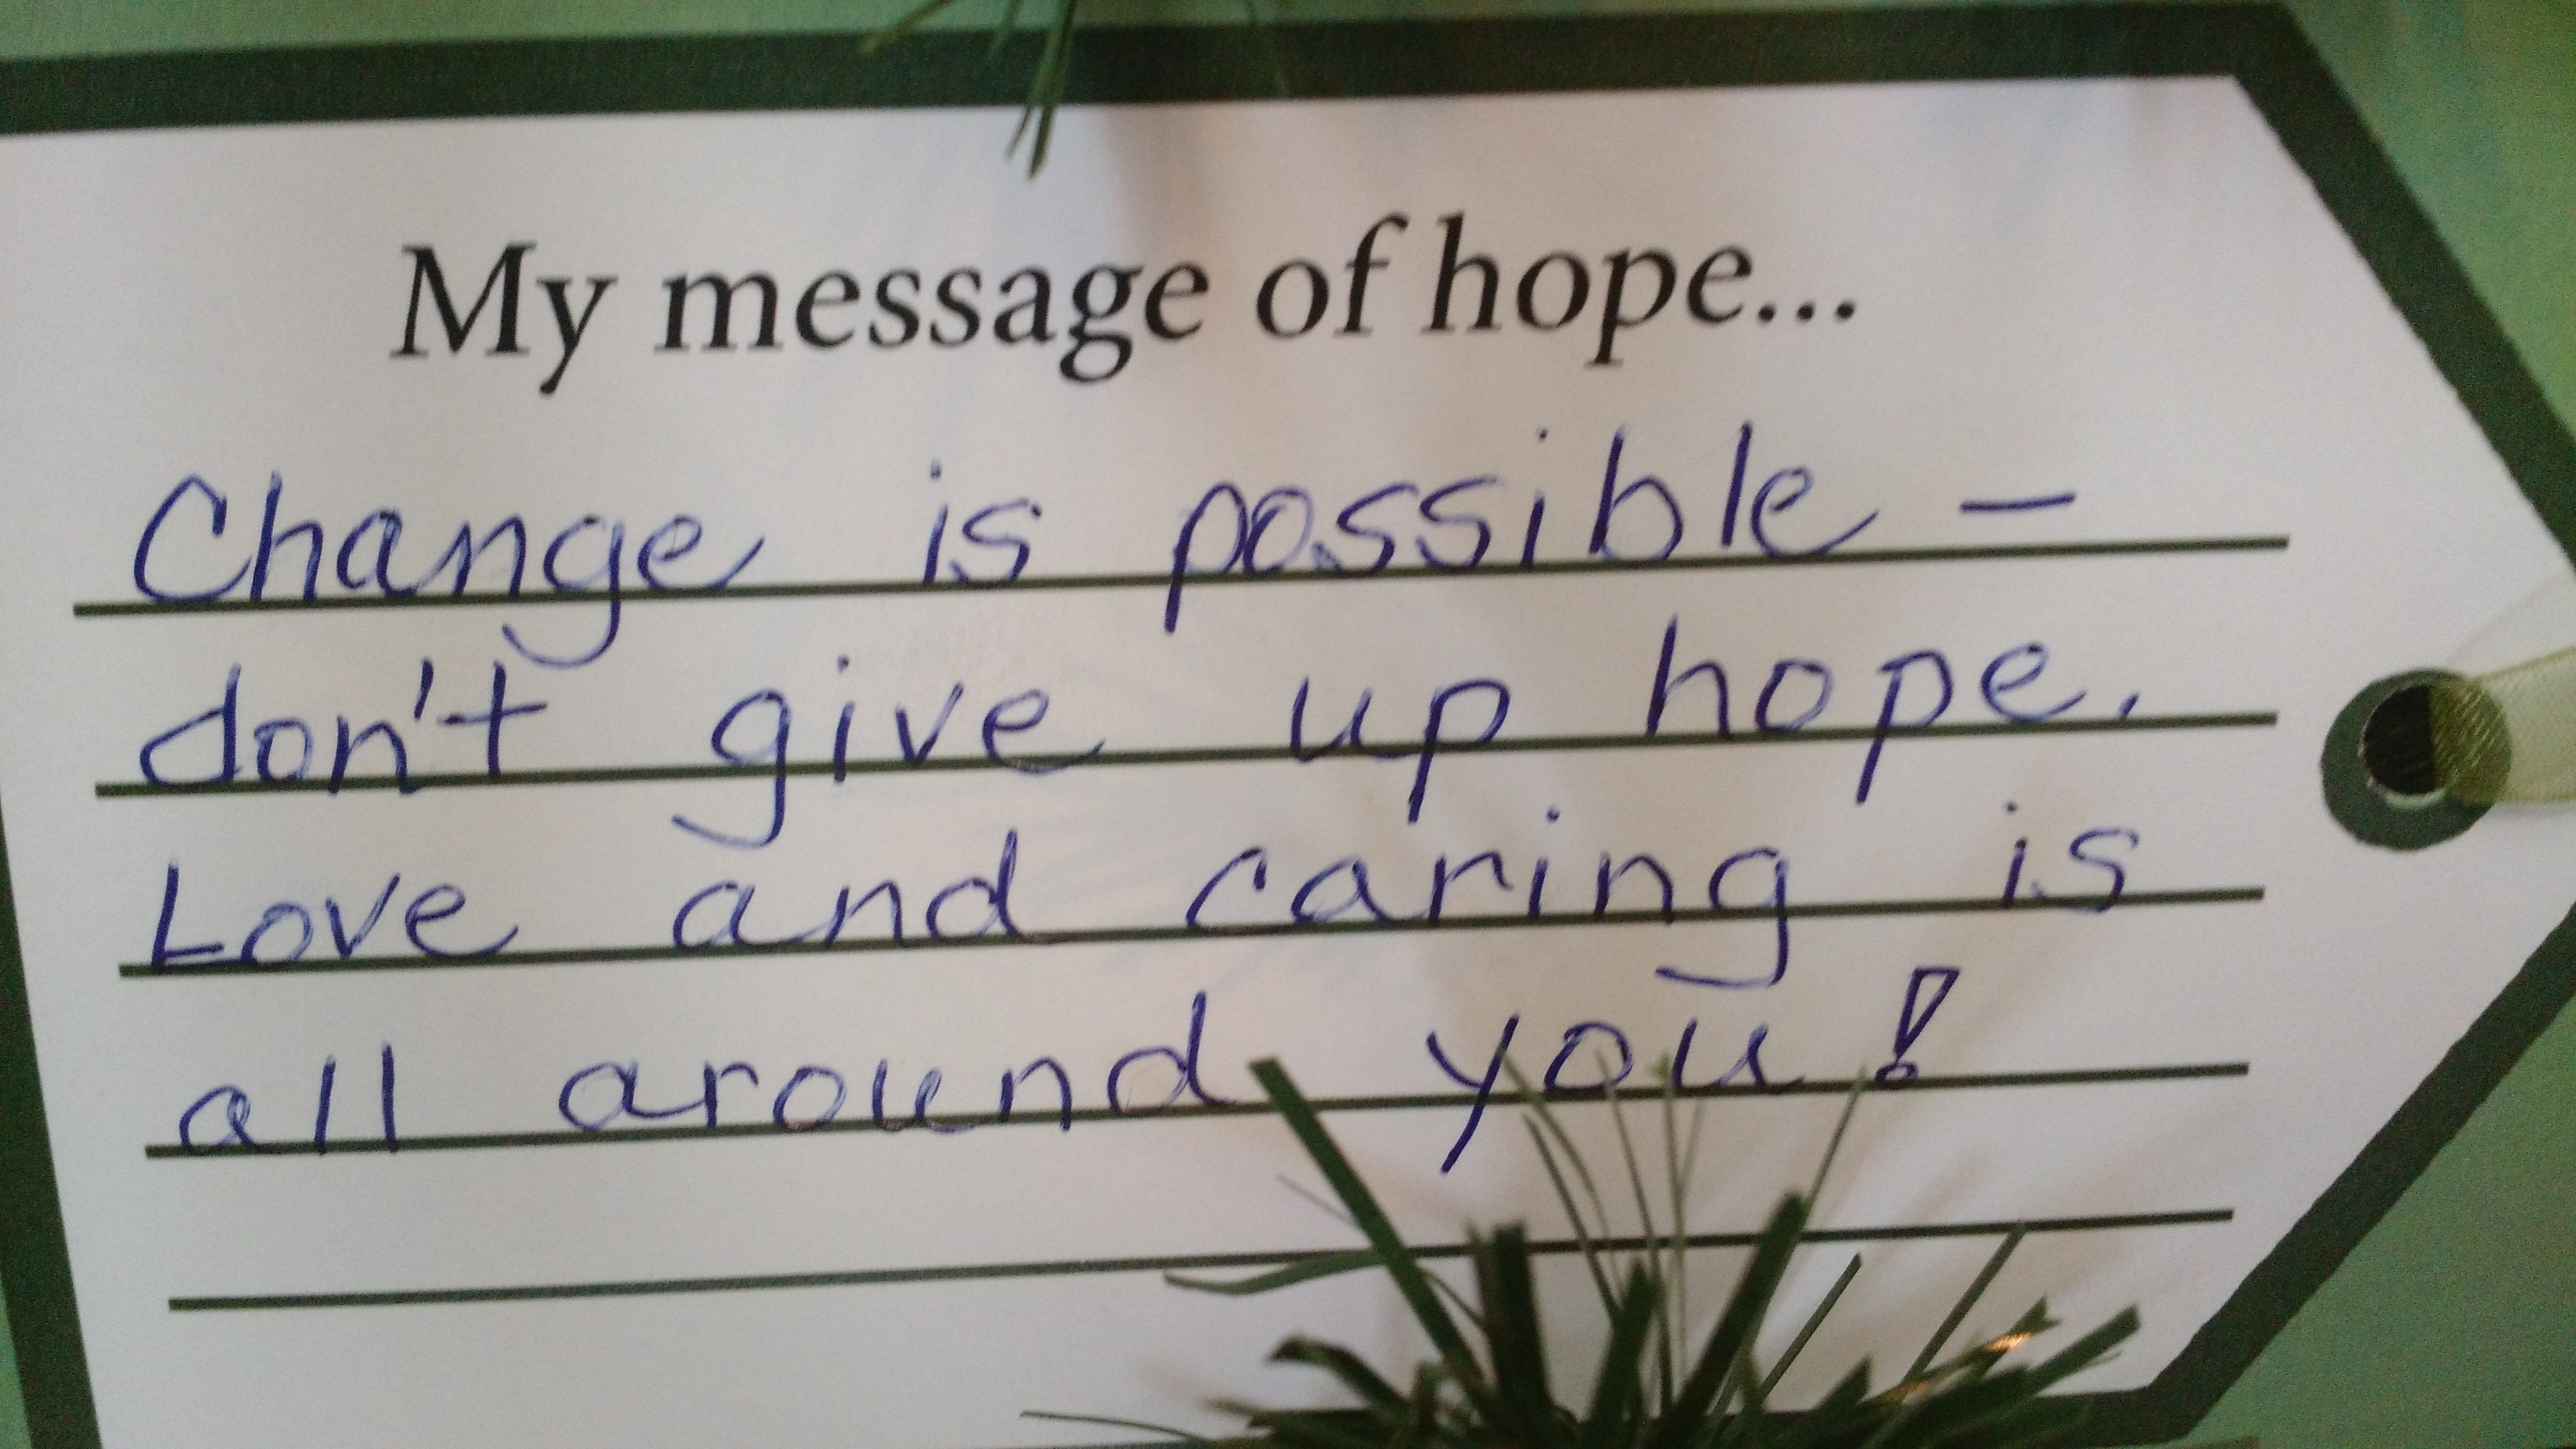 My message of hope...
Change is possible –
don't give up hope.
Love and caring is
all around you!